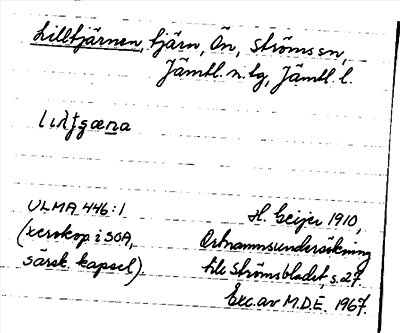 Lilltjärnen, tjärn, Ön, Ströms sn,
Jämtl. n. tg, Jämtl. l.
ULMA 446:1
(xerokop. i SOA,
särsk. kapsel).
H. Geijer 1910,
Ortnamnsundersökning
tili Strömsbladet, s. 27.
Exc. av M.D.E. 1967.